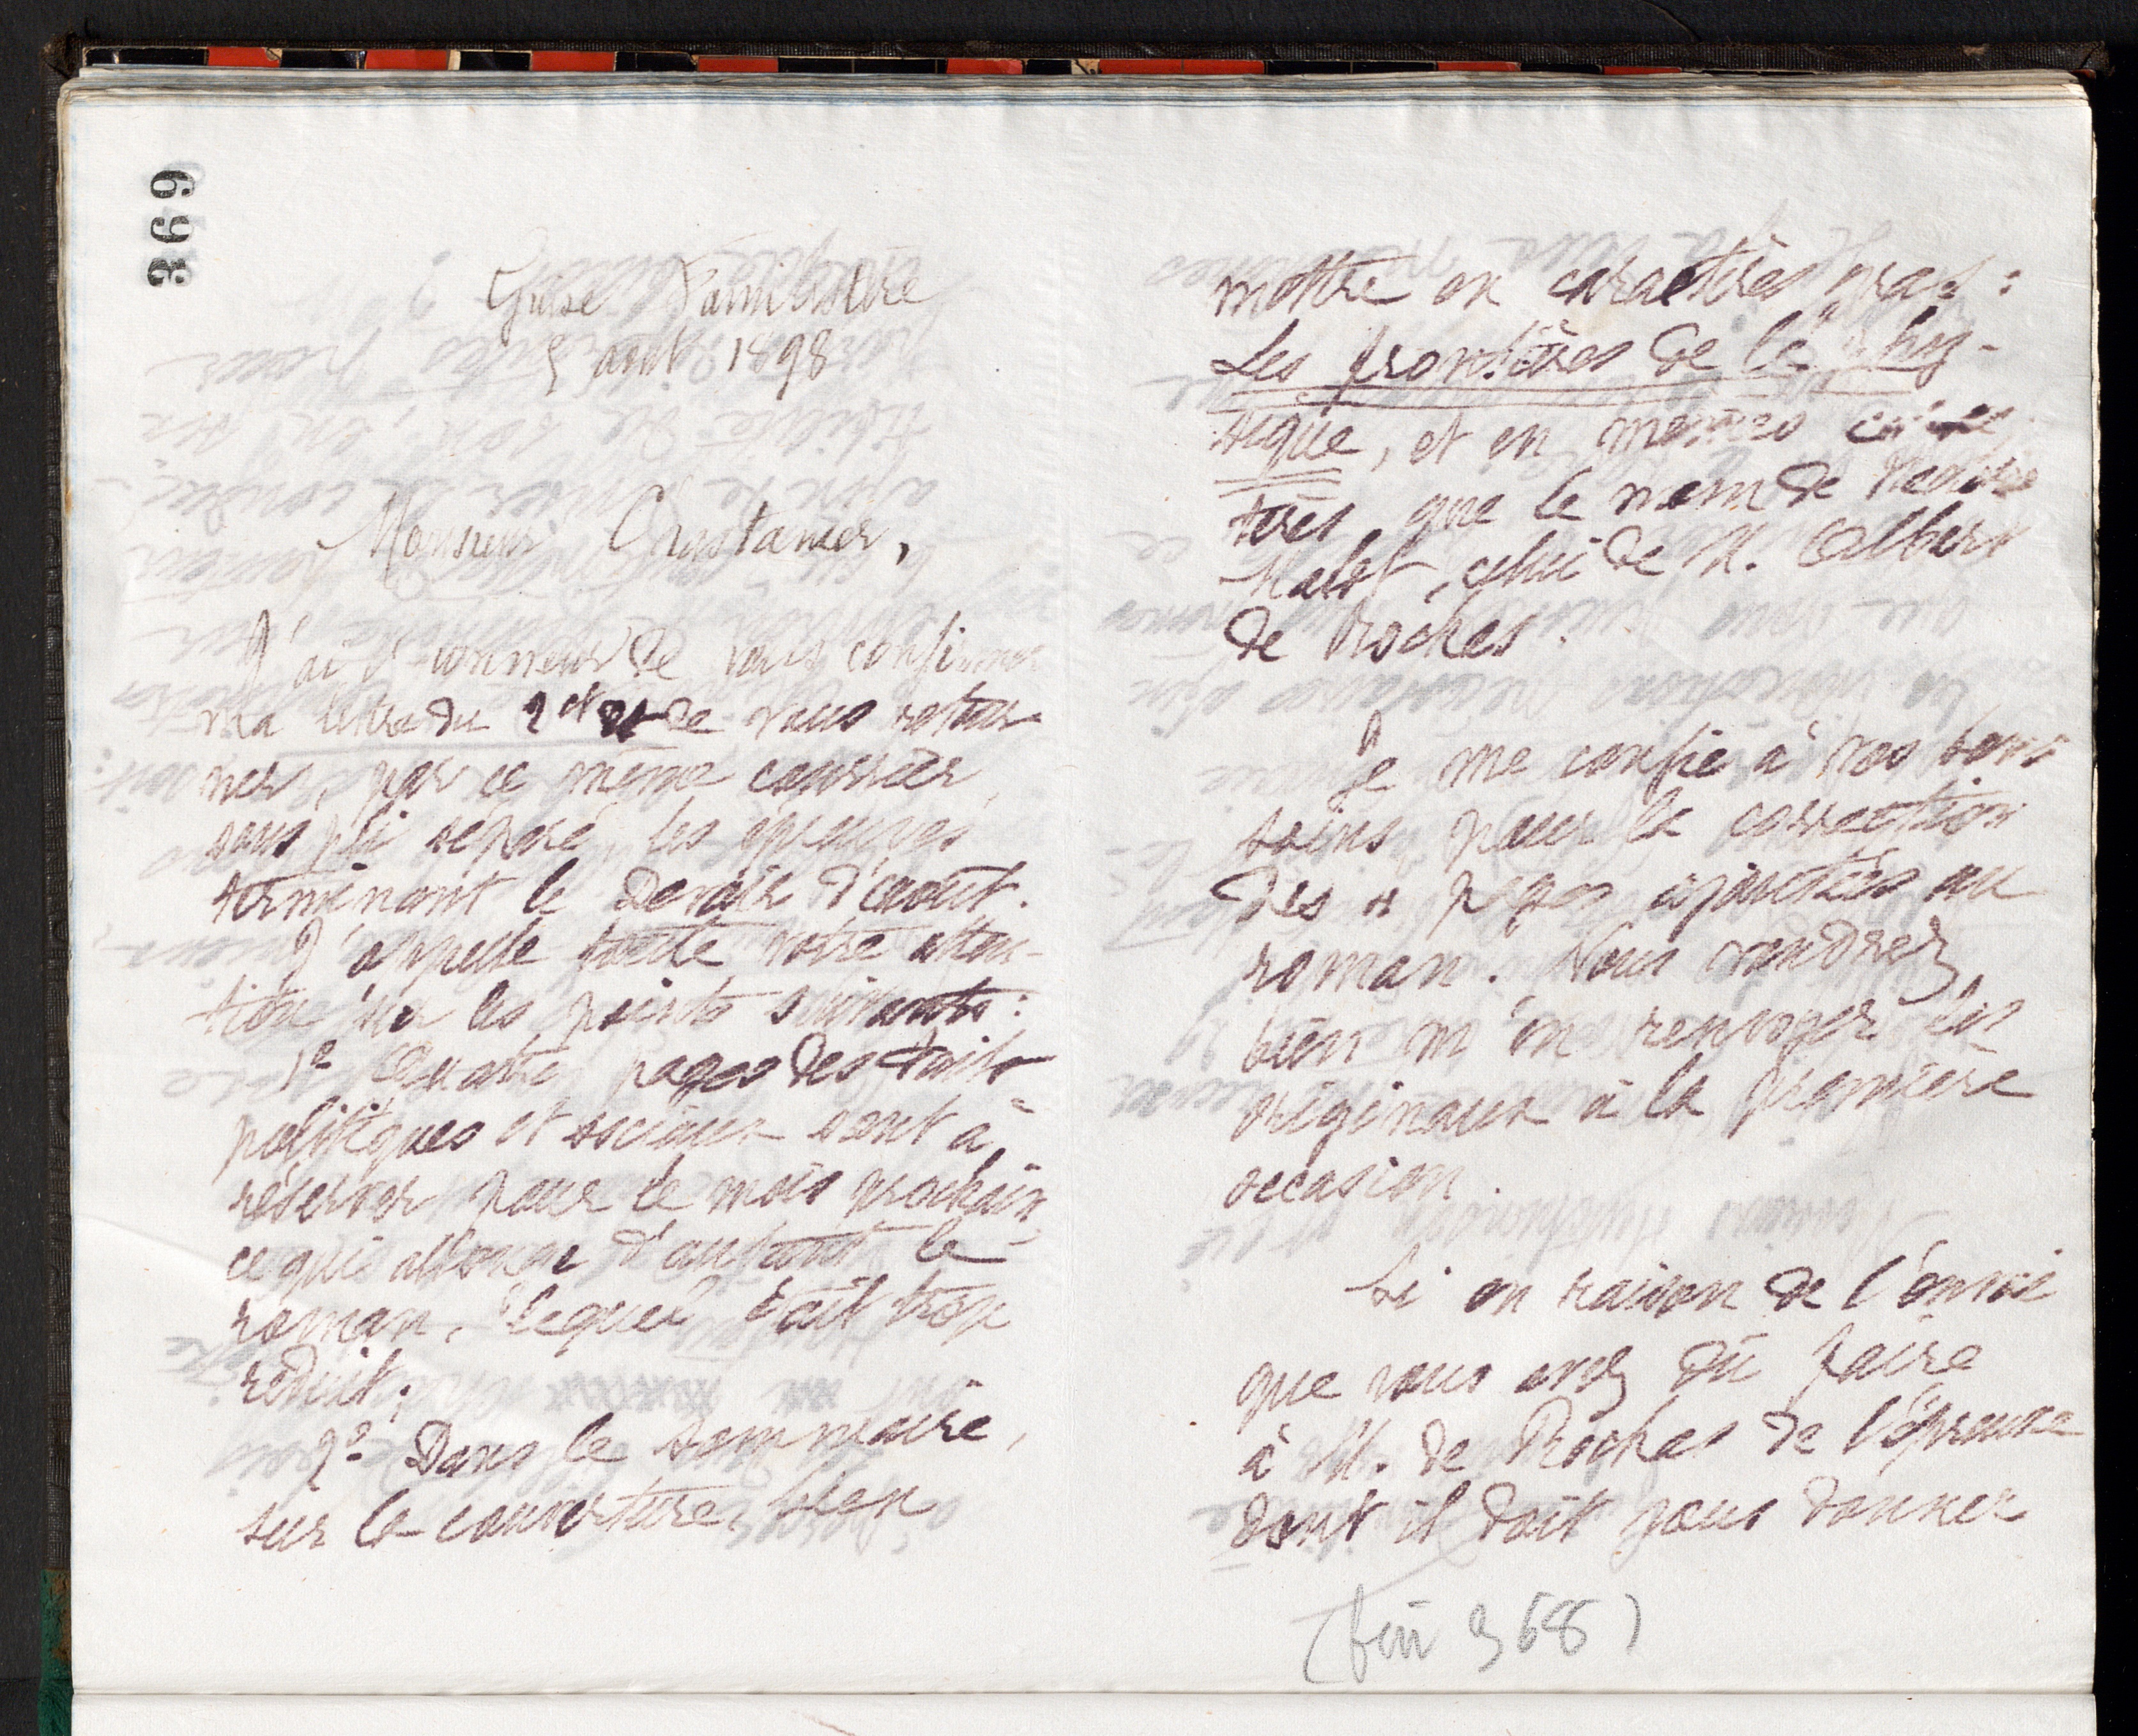 369
Guise Familistère
5 aout 1898
Monsieur Chastanier,
J'ai l'honneur de vous confirmer
ma lettre du 2 et de vous retour
ner, par ce même courrier,
sous pli séparé, les épreuves
terminant le Devoir d'août.
J'appelle toute votre atten-
tion sur les points suivants :
1º Quatre pages des Faits
politiques et sociaux sont à
réserver pour le mois prochain,
ce qui allonge d'autant le
roman, lequel était trop
réduit.
2º Dans le sommaire,
sur la couverture, bien
mettre en caractères gras :
Les frontières de la Phy-
sique, et en mêmes carac
tères que le nom de Hector
Malot, celui de M. Albert
de Rochas.
Je me confie à vos bons
soins pour la correction
des pages ajoutées au
roman. Vous voudrez
bien m'en renvoyer les
originaux à la première
occasion.
Si en raison de l'envoi
que vous avez dû faire
à M. de Rochas de l'épreuve
dont il doit vous donner
(fin 368)